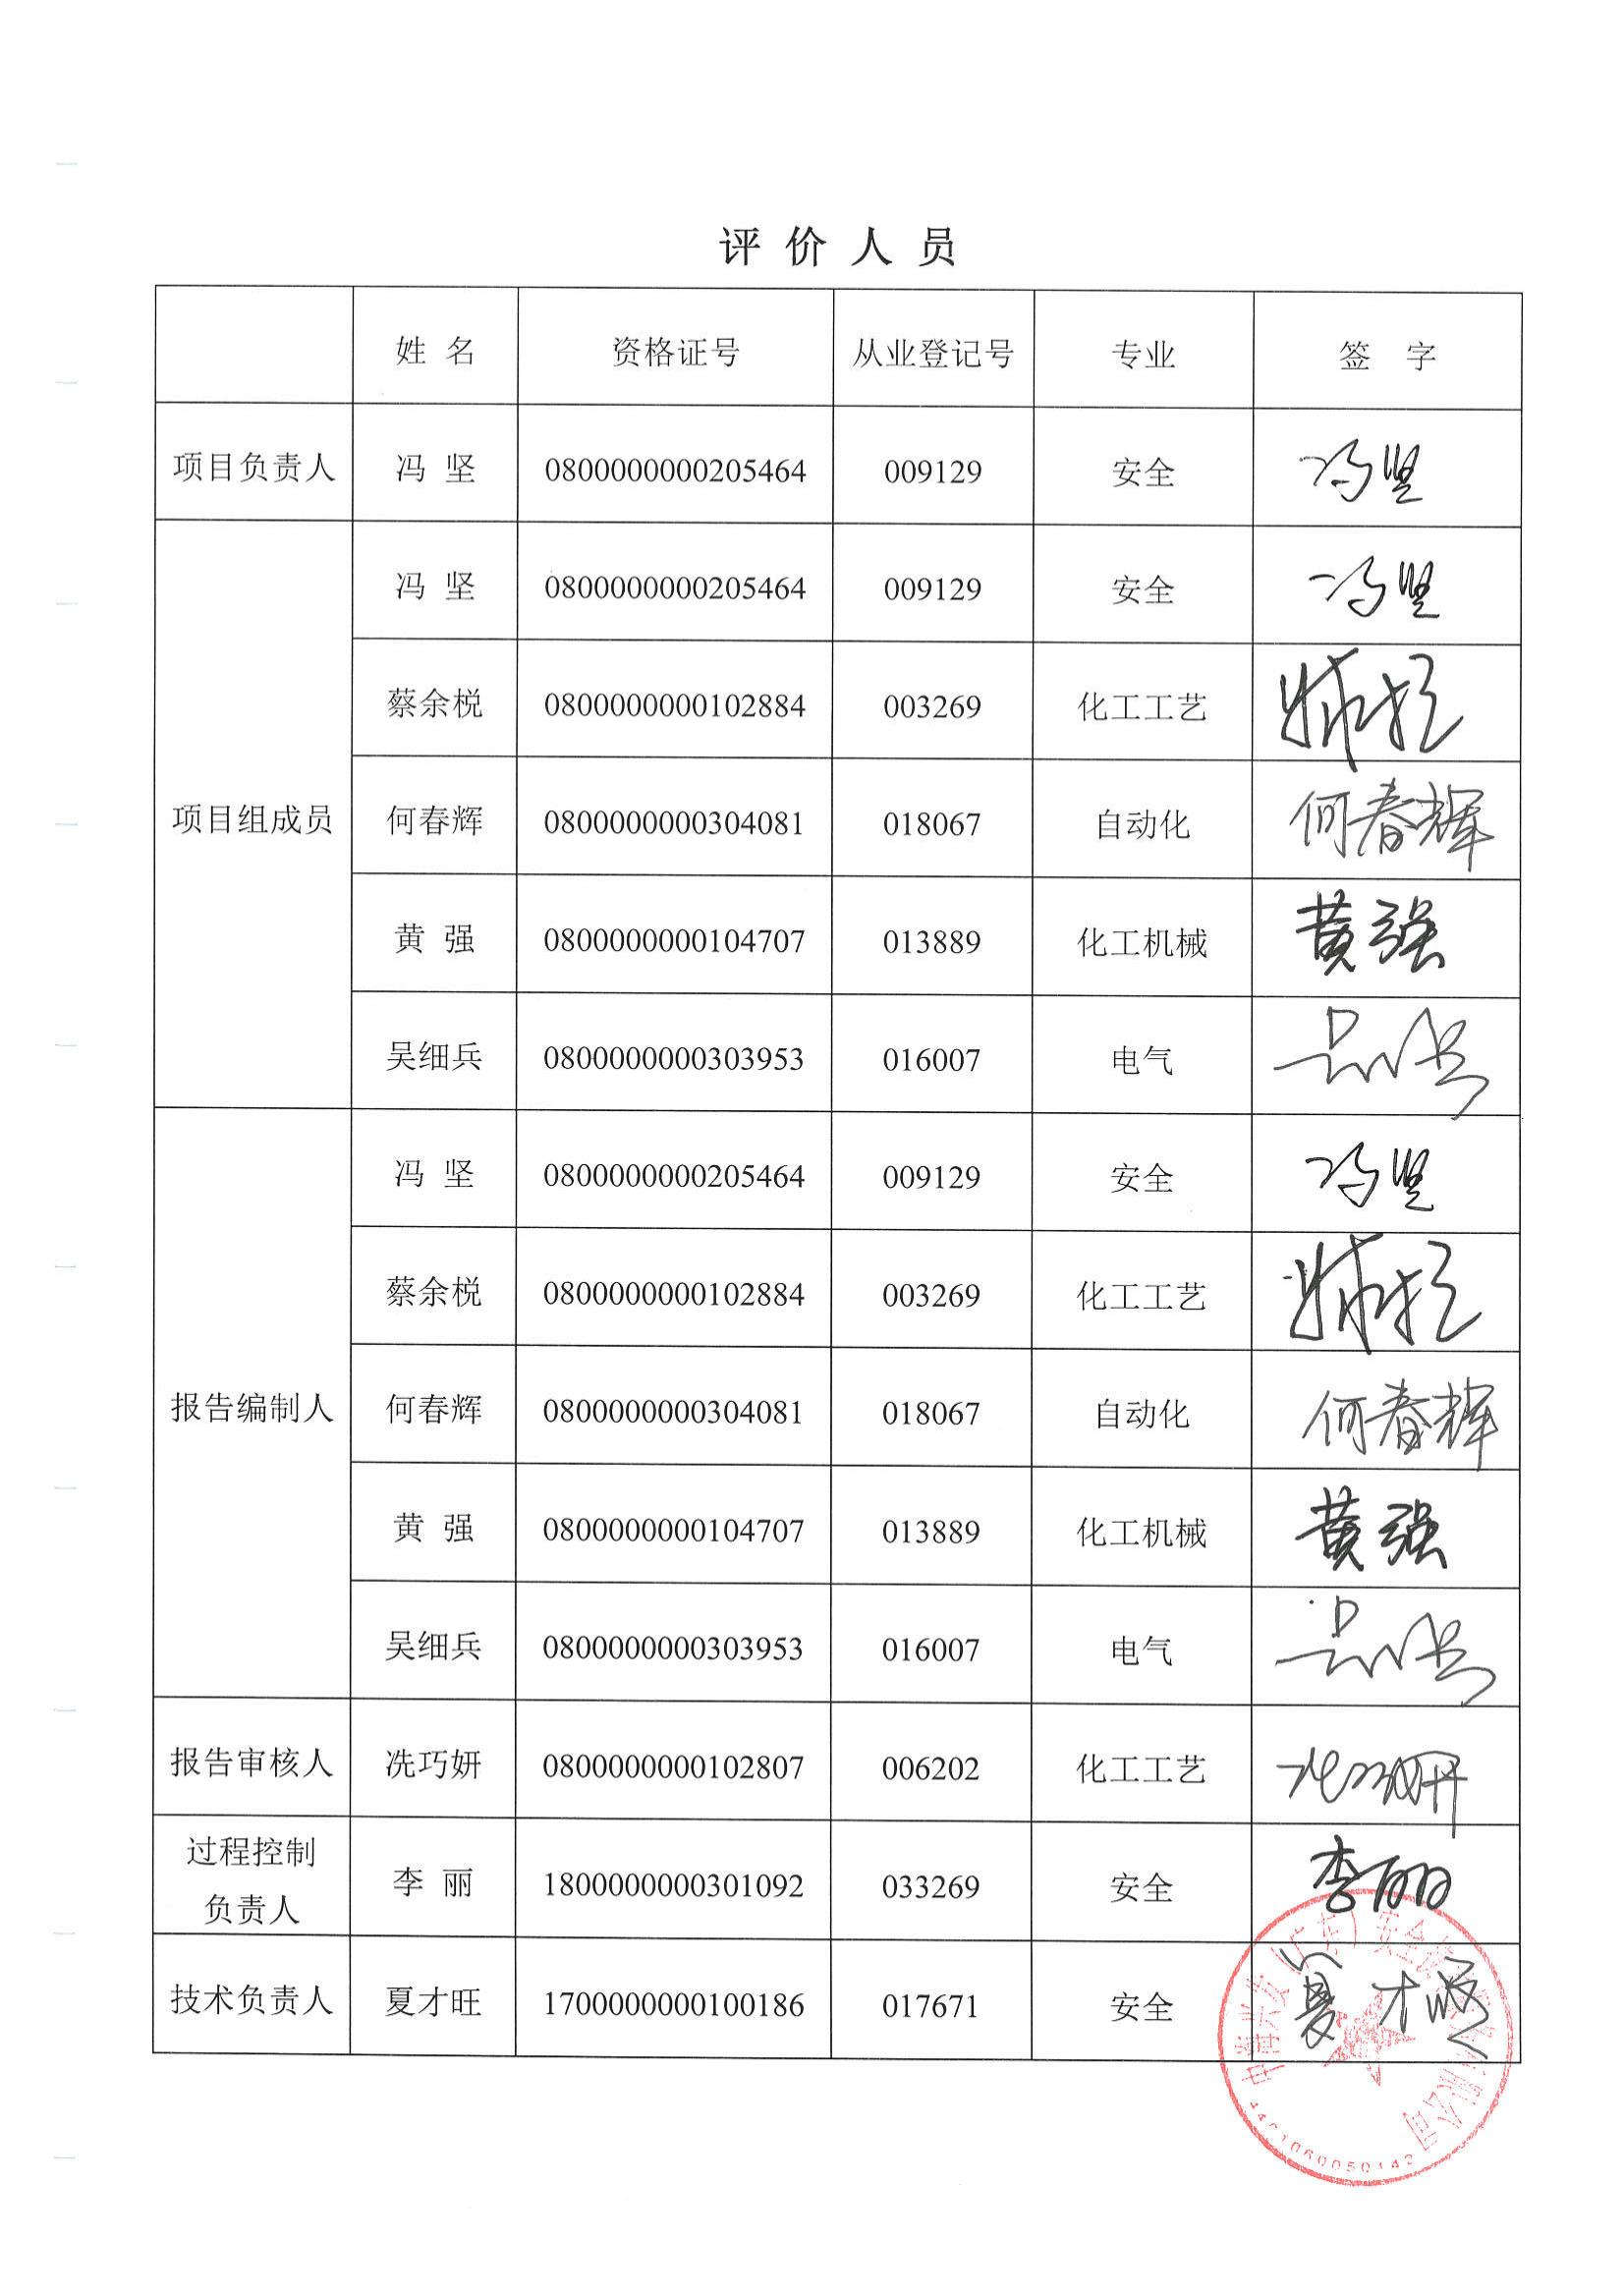 评价人员
姓名 资格证号 从业登记号 专业 签字
项目负责人 冯坚 0800000000205464 009129 安全 冯坚
项目组成员 冯坚 0800000000205464 009129 安全 冯坚
蔡余棁 0800000000102884 003269 化工工艺
何春辉 0800000000304081 018067 自动化 何春辉
黄强 0800000000104707 013889 化工机械 黄强
吴细兵 0800000000303953 016007 电气
报告编制人 冯坚 0800000000205464 009129 安全 冯坚
蔡余棁 0800000000102884 003269 化工工艺
何春辉 0800000000304081 018067 自动化 何春辉
黄强 0800000000104707 013889 化工机械 黄强
吴细兵 0800000000303953 016007 电气
报告审核人 冼巧妍 0800000000102807 006202 化工工艺
过程控制
负责人 李丽 1800000000301092 033269 安全 李丽
技术负责人 夏才旺 1700000000100186 017671 安全 夏才旺
4401060050142